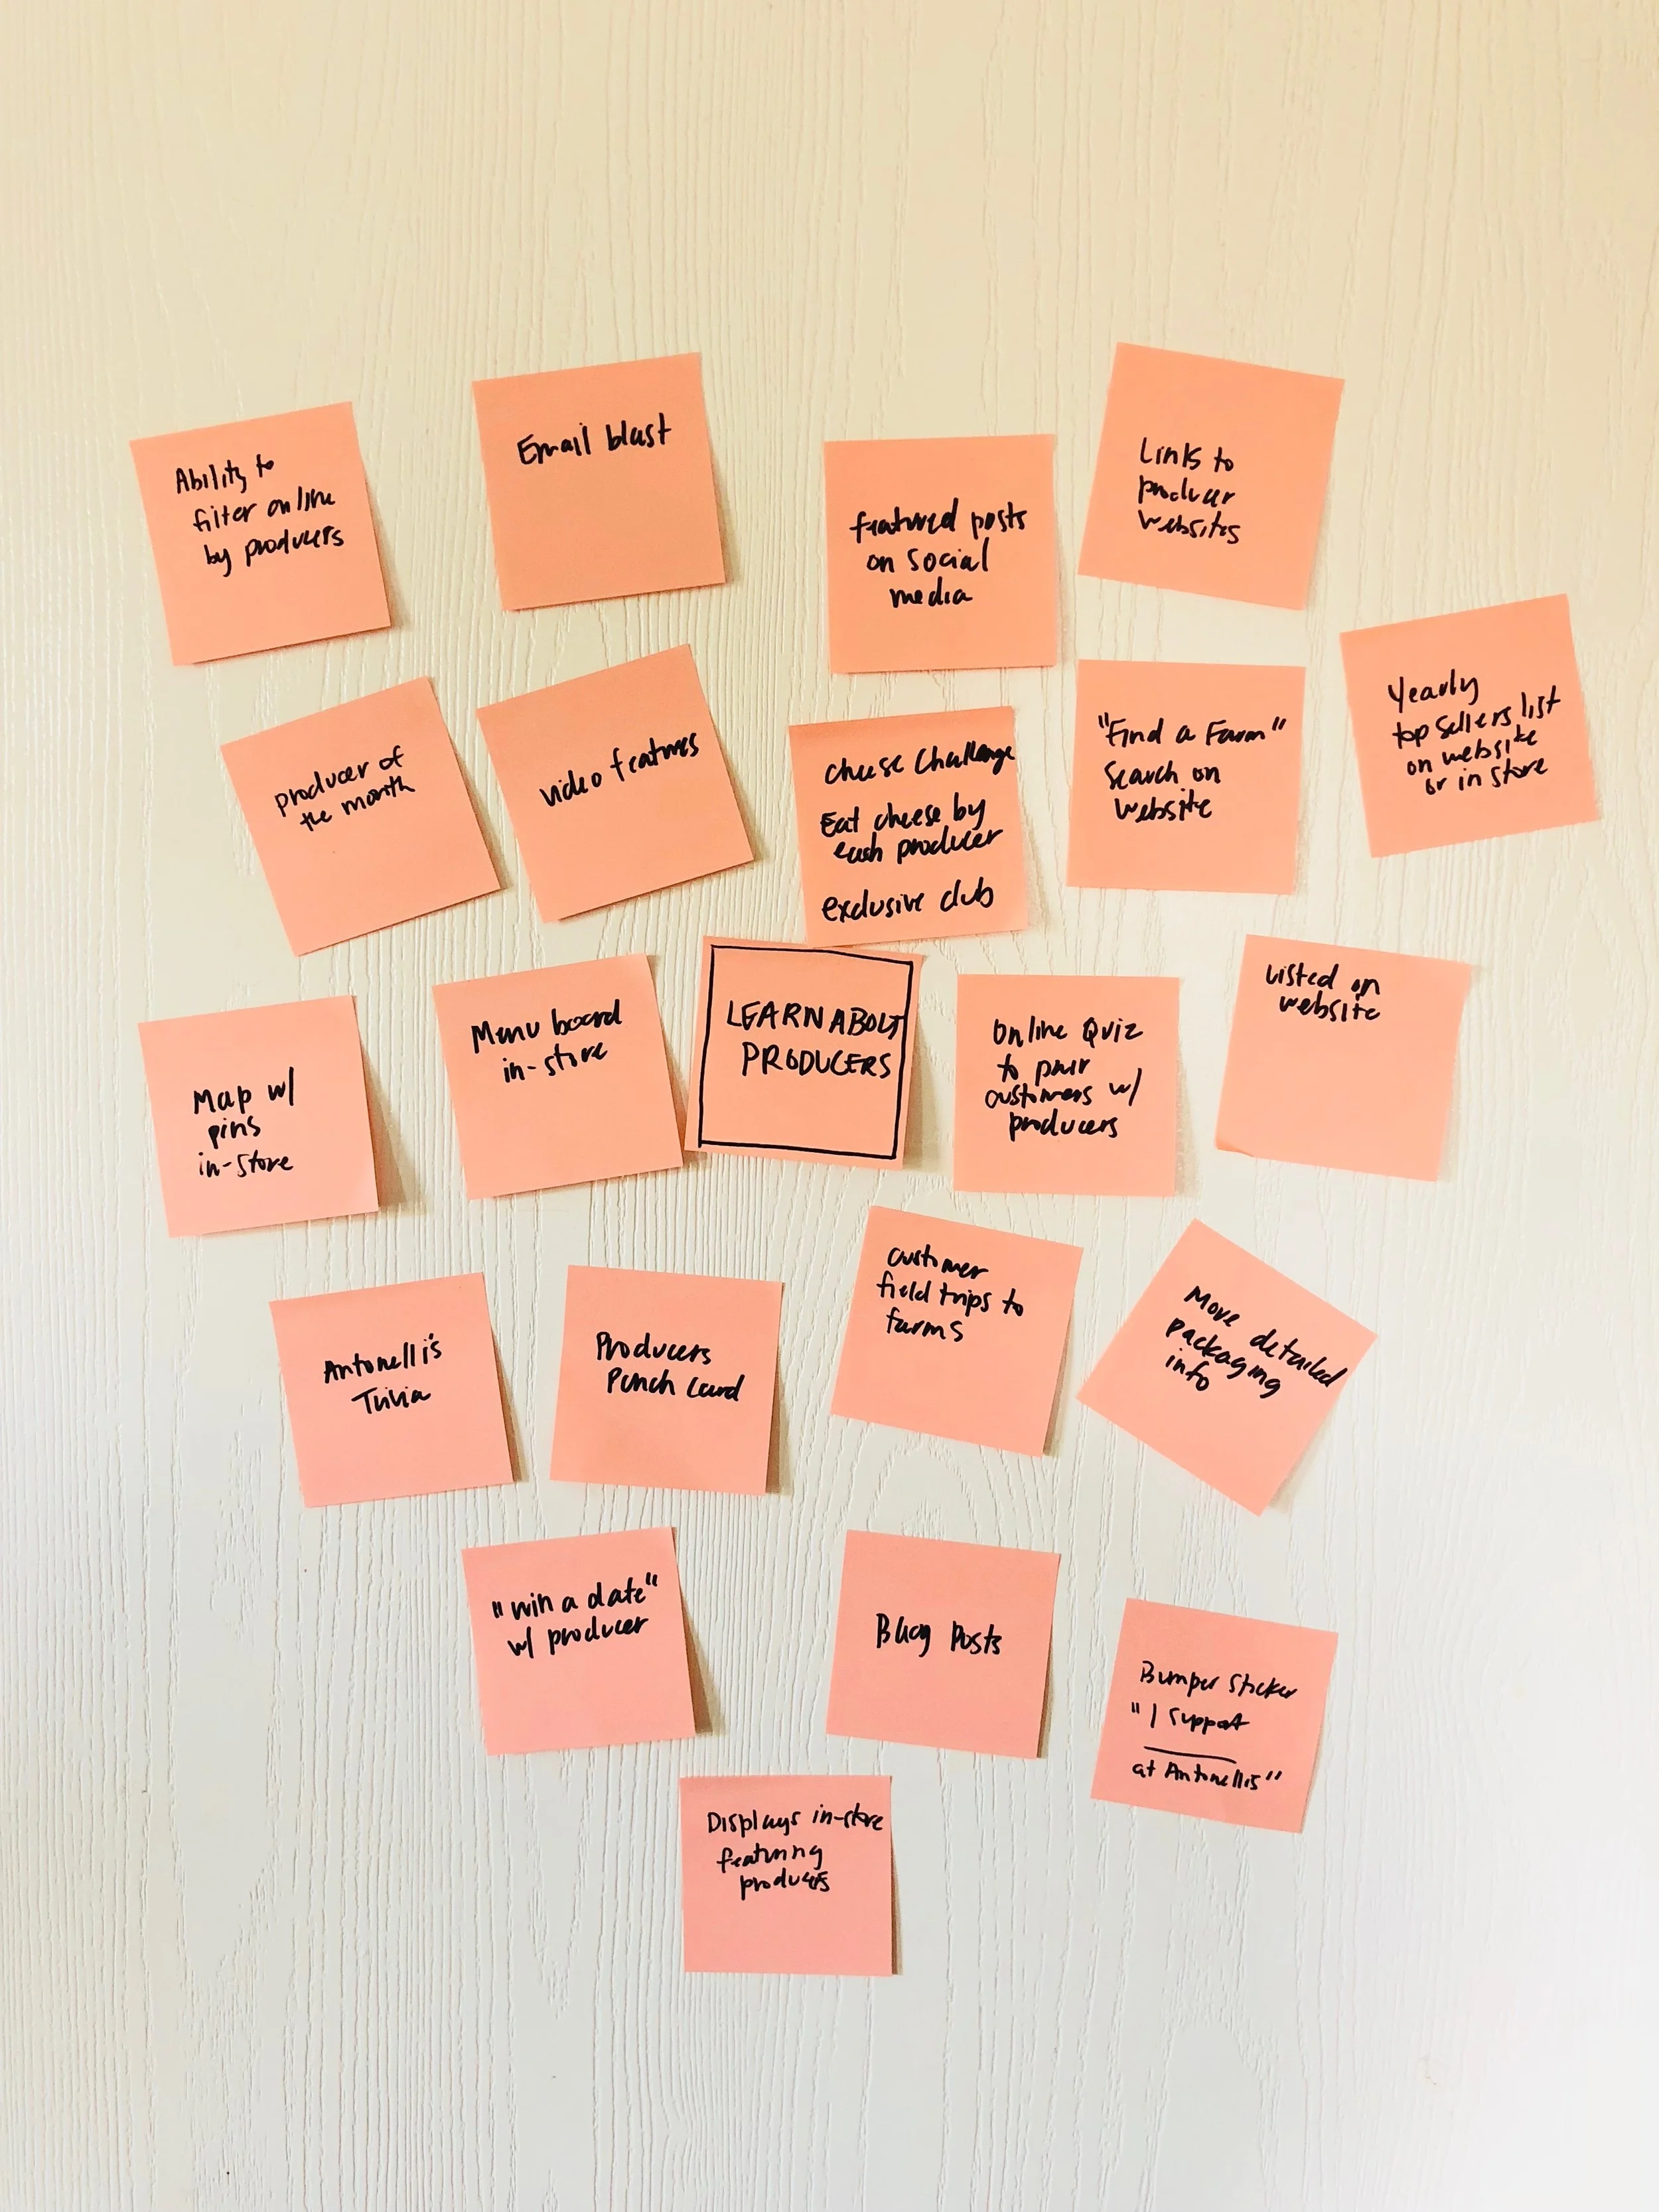 Ability to
filter online
by producers
Email blast
featured posts
on social
media
Links to
producer
websites
producer of
the month
video features
cheese challenge
Eat cheese by
each producer
exclusive club
"Find a Farm"
Search on
website
Yearly
top sellers list
on website
or in store
Map w/
pins
in-store
Menu board
in-store
LEARN ABOUT
PRODUCERS
Online Quiz
to pair
customers w/
producers
Listed on
website
Antonelli's
Trivia
Producers
Punch Card
customer
field trips to
farms
More detailed
packaging
info
"win a date"
w/ producer
Blog Posts
Bumper Sticker
"I support
at Antonellis"
Displays in-store
featuring
producers